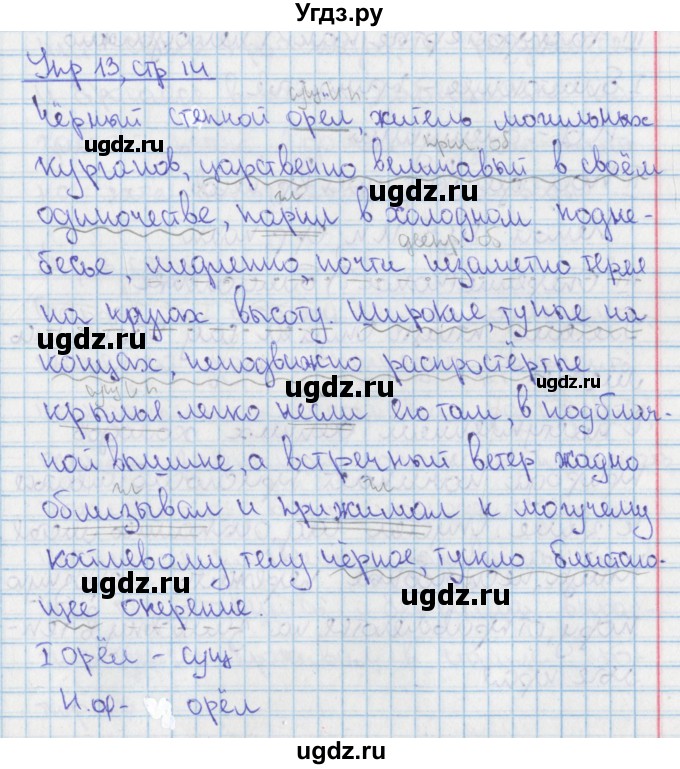 Угдз.ру
Упр 13, стр 14
сущ И.п
Чёрный степной орел, житель могильных
прил об
курганов, царственно величавый в своём
гл
одиночестве, парил в холодном подне-
дееп об
бесье, медленно, почти незаметно теряя
на кругах высоту. Широкие, тупые на
концах, неподвижно распростёртые
сущ И.п
крылья легко несли его там, в подоблач-
ной вышине, а встречный ветер жадно
гл гл
облизывал и прижимал к могучему
веому телу чёрное, тускло блистаю-
щее оперение.
I орёл - сущ
Н.ф - орёл
ugdz.ru
ugdz.ru
ugdz.ru
ugdz.ru
ugdz.ru
ugdz.ru
ugdz.ru
ugdz.ru
ugdz.ru
ugdz.ru
ugdz.ru
ugdz.ru
ugdz.ru
ugdz.ru